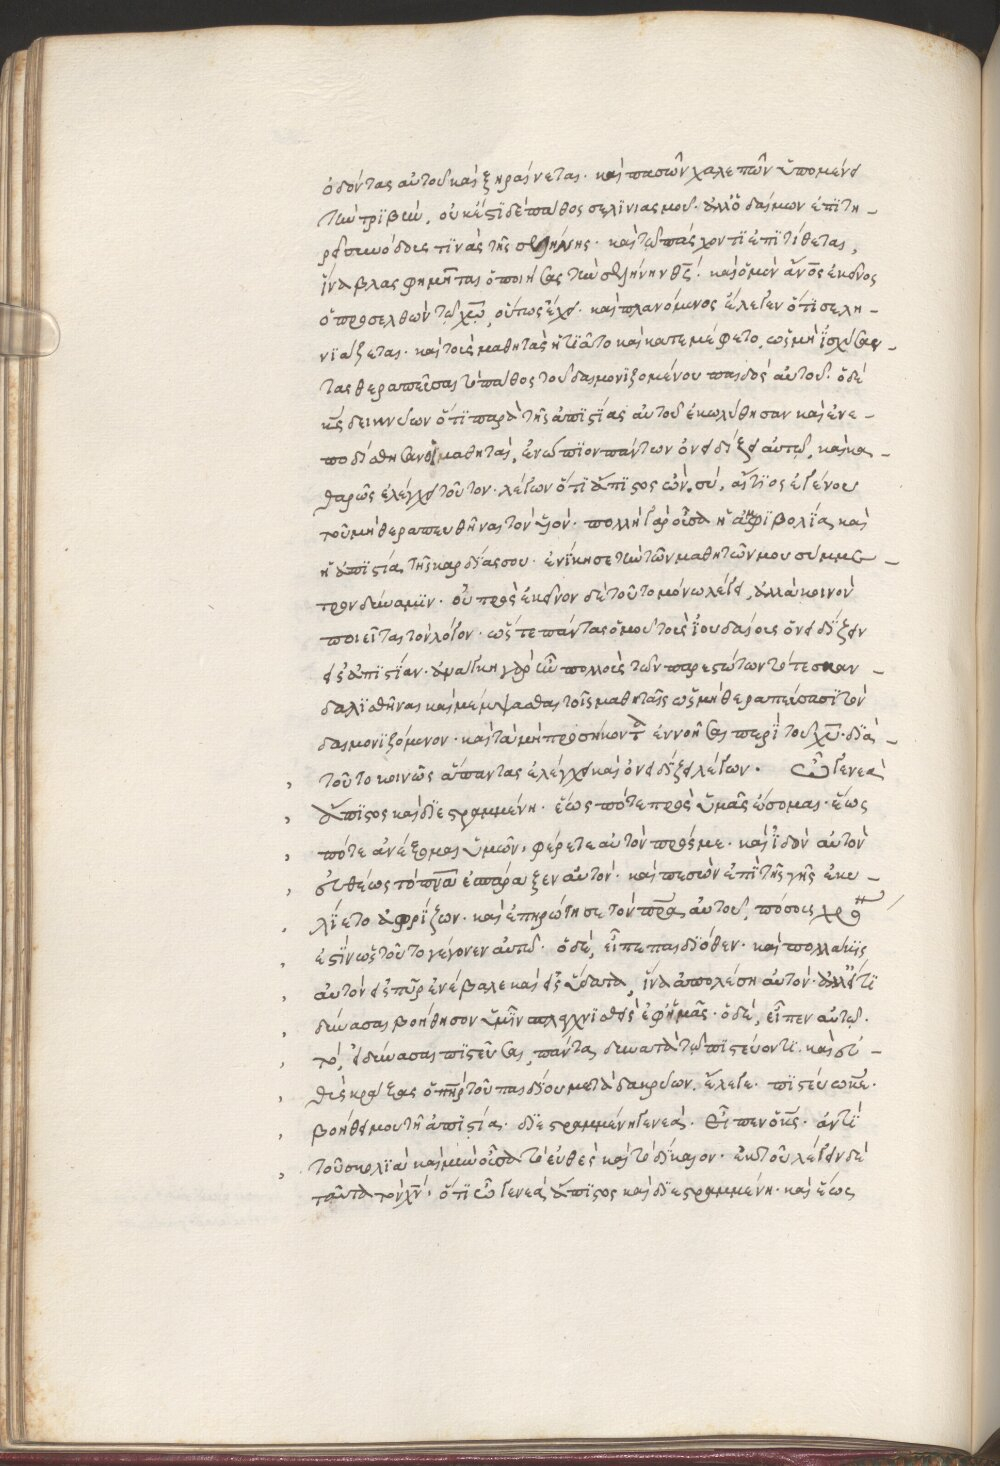 ὀδόντας αὐτοῦ καὶ ξηραίνεται· καὶ πασῶν χαλεπῶν ὑπομένει
τὴν τριβὴν, οὐκ ἔστι δὲ πάθος σεληνιασμοῦ· ἀλλ' ὁ δαίμων ἐπιτη-
ρεῖ τινὰς τῆς σελήνης· καὶ τῷ πάσχοντι ἐπιτίθεται,
ἵνα βλασφημῆται ὁ ποιήσας τὴν σελήνην θς̅· καὶ ὁ μὲν ἄνο̅ς ἐκεῖνος
ὁ προσελθὼν τῷ χω̅, οὕτως ἔχει· καὶ πλανόμενος ἔλεγεν ὅτι σελη-
νιάζεται· καὶ τοὺς μαθητὰς ᾐτιᾶτο καὶ κατεμέμφετο, ὡς μὴ ἰσχύσαν-
τας θεραπεῦσαι τὸ πάθος τοῦ δαιμονιζομένου παιδὸς αὐτοῦ. ὁ δὲ
κς̅ δεικνύων ὅτι παρὰ τῆς ἀπιστίας αὐτοῦ ἐκωλύθησαν καὶ ἐνε-
ποδίσθησαν οἱ μαθηταὶ, ἐνώπιον πάντων ὀνειδίζει αὐτῷ, καὶ κα-
θαρῶς ἐλέγχει τοῦτον· λέγων ὅτι ἄπιστος ὢν σύ, αἴτιος ἐγένου
τοῦ μὴ θεραπευθῆναι τὸν υἱόν· πολλὴ γὰρ οὖσα ἡ ἀμφιβολία, καὶ
ἡ ἀπιστία τῆς καρδίας σου· ἐνίκησε τὴν τῶν μαθητῶν μου σύμμε-
τρον δύναμιν· οὐ πρὸς ἐκεῖνον δὲ τοῦτο μόνω λέγει, ἀλλὰ κοινὸν
ποιεῖται τὸν λόγον· ὥστε πάντας ὁμοῦ τοὺς ἰουδαίους ὀνειδίζειν
εἰς ἀπιστίαν· ἀνάγκη γὰρ ἦν πολλοὺς τῶν παρεστώτων τότε σκαν-
δαλισθῆναι καὶ μέμψασθαι τοῖς μαθηταῖς ὡς μὴ θεραπεύσασι τὸν
δαιμονιζόμενον· καὶ τὰ μὴ προσήκοντα ἐννοῆσαι περὶ τοῦ χυ̅· διὰ-
τοῦτο κοινῶς ἅπαντας ἐλέγχει καὶ ὀνειδίζει λέγων. Ὦ γενεὰ
ἄπιστος καὶ διεστραμμένη· ἕως πότε πρὸς ὑμᾶς ἔσομαι· ἕως
πότε ἀνέξομαι ὑμῶν· φέρετε αὐτὸν πρός με· καὶ ἰδὸν αὐτὸν
εὐθέως τὸ πνα̅ ἐσπάραξεν αὐτόν· καὶ πεσὼν ἐπὶ τῆς γῆς ἐκυ-
λίετο ἀφρίζων· καὶ ἐπηρώτησε τὸν πρα̅ αὐτοῦ, πόσος χρο
ἐστὶν ὡς τοῦτο γέγονεν αὐτῷ· ὁ δὲ, εἶπε παιδιόθεν· καὶ πολλάκις
αὐτὸν εἰς πῦρ ἐνέβαλε καὶ εἰς ὕδατα, ἵνα ἀπολέσῃ αὐτόν· ἀλλ' ὅτι
δύνασαι βοήθησον ὑμῖν σπλαχνισθεὶς ἐφ' ἡμᾶς· ὁ δὲ, εἶπεν αὐτῷ·
τὸ, εἰ δύνασαι πιστεῦσαι, πάντα δυνατὰ τῷ πιστεύοντι· καὶ εὐ-
θὺς κράξας ὁ πηρ̅ τοῦ παιδίου μετὰ δακρύων, ἔλεγε· πιστεύω κε̅·
βοήθει μου τῇ ἀπιστίᾳ· διεστραμμένη γενεά· Εἶπεν ὁ κς̅· ἀντὶ
τοῦ σκολιὰ καὶ μὴ οὖσα τὸ εὐθὲς καὶ τὸ δίκαιον· ἐκ τοῦ λέγειν δὲ
ταῦτα τὸν χν̅· ὅτι ὦ γενεὰ ἄπιστος καὶ διεστραμμένη· καὶ ἕως